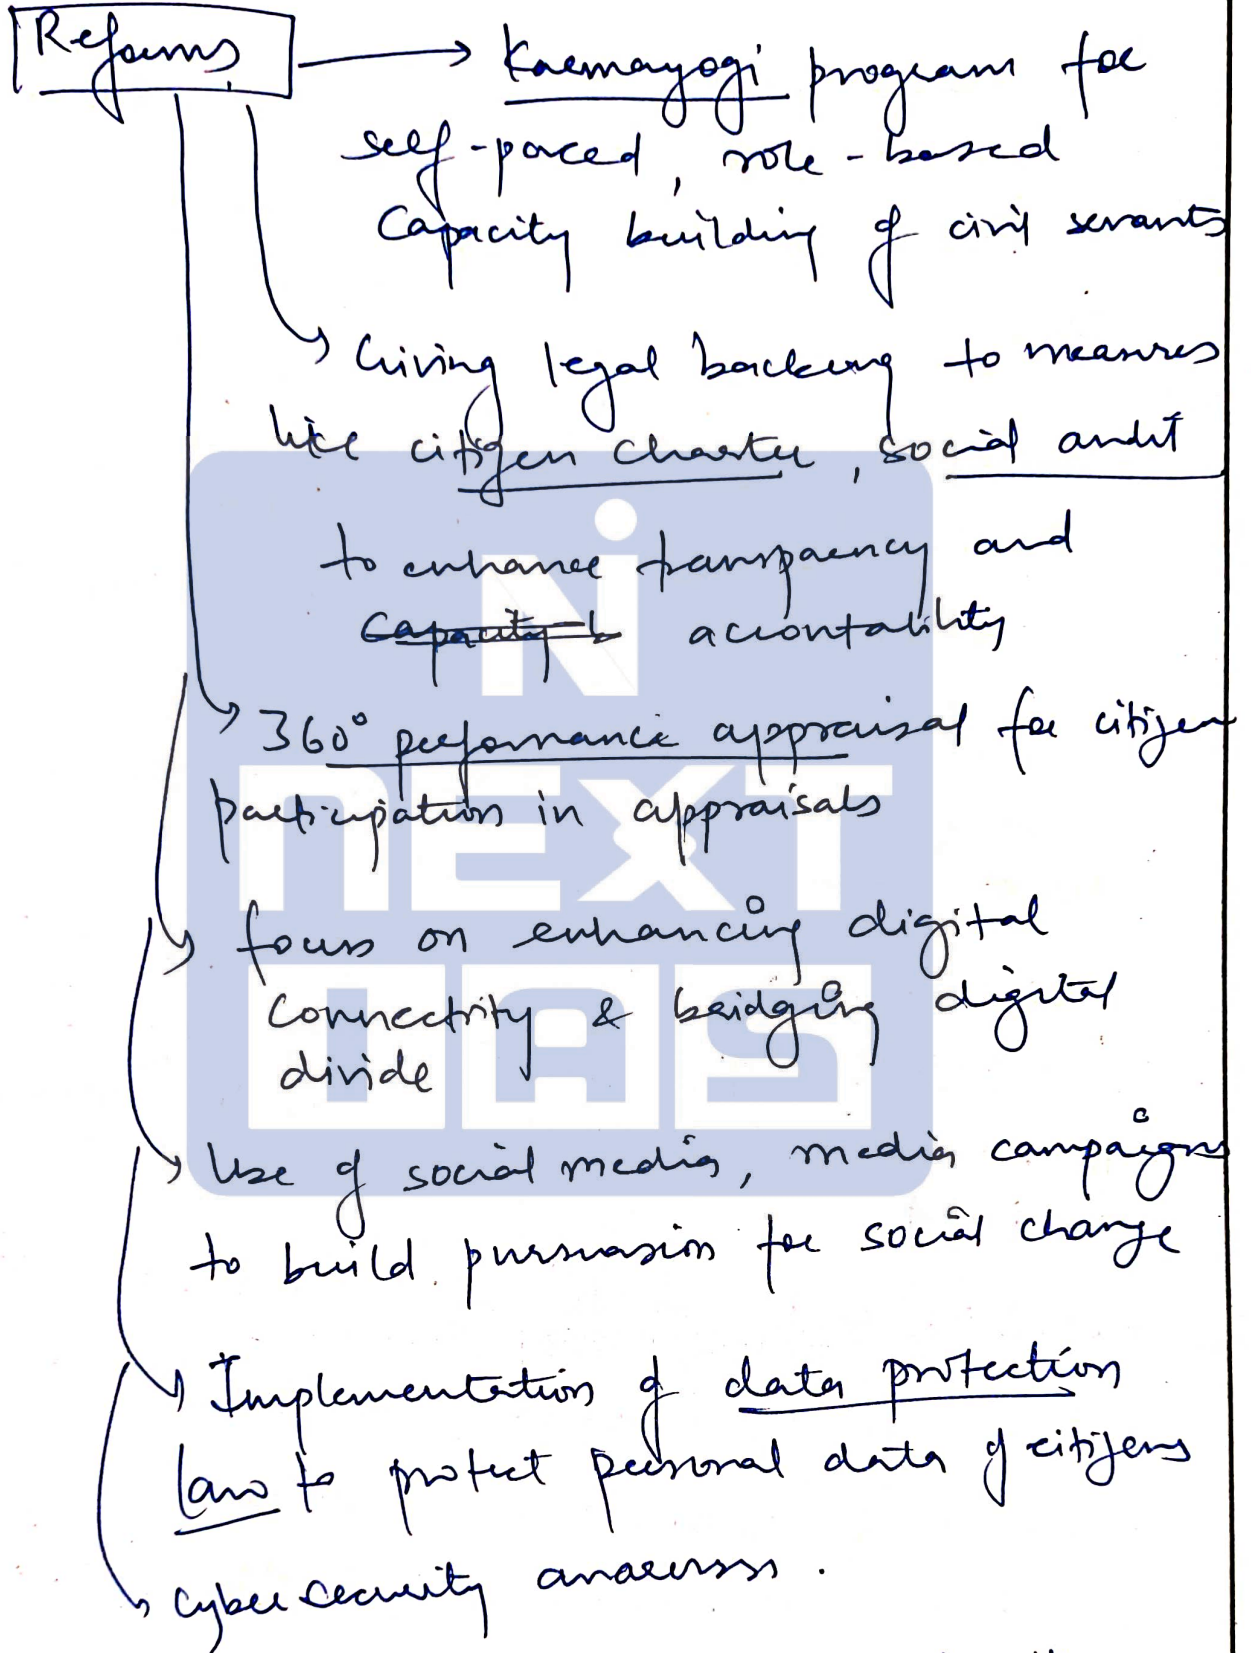 Reforms
Karmayogi program for
self-paced, role-based
Capacity building of civil servants
Giving legal backing to measures
like citizen charter, social audit
to enhance transpaency and
Capacity b accontability
360° performance appraisal for citizen
participation in appraisals
focus on enhancing digital
connectivity & bridging digital
divide
Use of social media, media campaigns
to build pursuasion for social change
Implementation of data protection
law to protect personal data of citizens
cyber security awareness.
NEXT
IAS